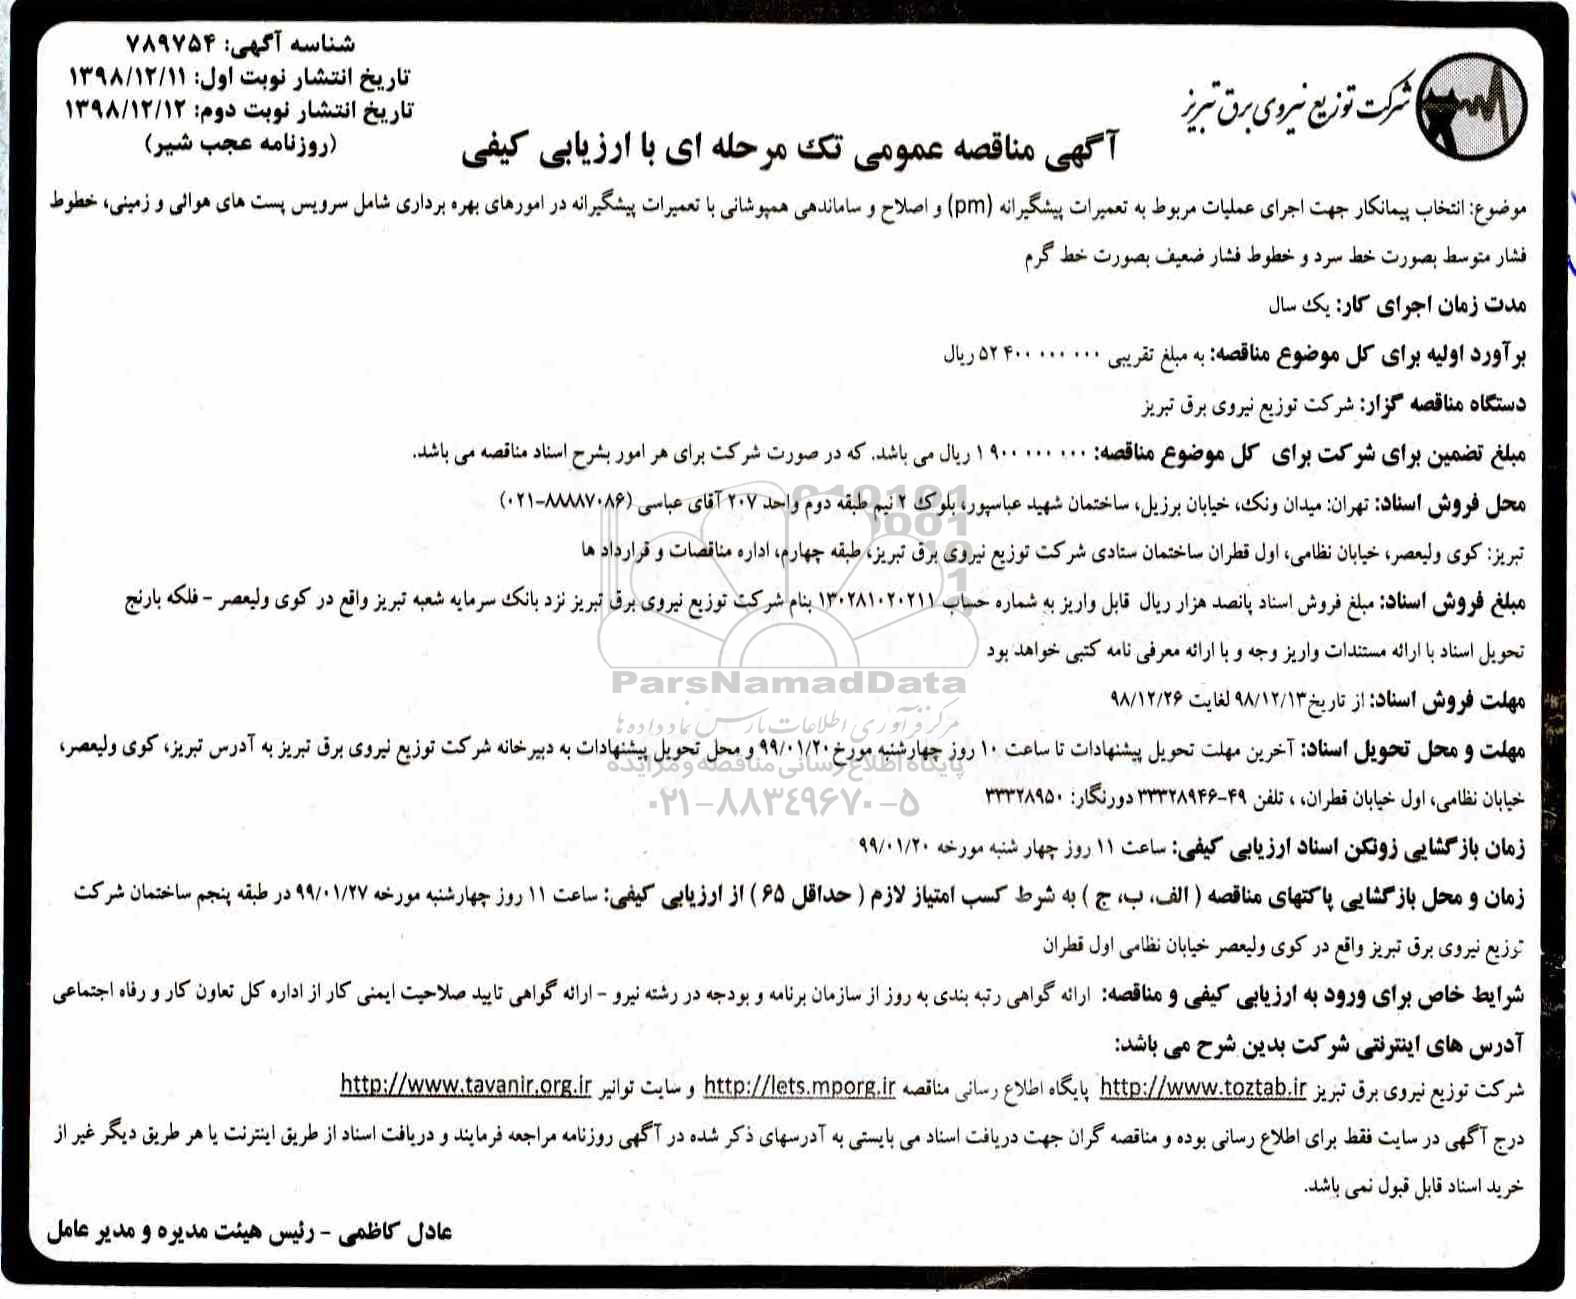 شناسه آگهی: ۷۸۹۷۵۴
تاریخ انتشار نوبت اول: ۱۳۹۸/۱۲/۱۱
تاریخ انتشار نوبت دوم: ۱۳۹۸/۱۲/۱۲
(روزنامه عجب شیر)
شرکت توزیع نیروی برق تبریز
آگهی مناقصه عمومی تک مرحله ای با ارزیابی کیفی
موضوع: انتخاب پیمانکار جهت اجرای عملیات مربوط به تعمیرات پیشگیرانه (pm) و اصلاح و ساماندهی همپوشانی با تعمیرات پیشگیرانه در امورهای بهره برداری شامل سرویس پست های هوائی و زمینی، خطوط
فشار متوسط بصورت خط سرد و خطوط فشار ضعیف بصورت خط گرم
مدت زمان اجرای کار: یک سال
برآورد اولیه برای کل موضوع مناقصه: به مبلغ تقریبی ۰۰۰ ۰۰۰ ۴۰۰ ۵۲ ریال
دستگاه مناقصه گزار: شرکت توزیع نیروی برق تبریز
مبلغ تضمین برای شرکت برای کل موضوع مناقصه: ۰۰۰ ۰۰۰ ۹۰۰ ۱ ریال می باشد. که در صورت شرکت برای هر امور بشرح اسناد مناقصه می باشد.
محل فروش اسناد: تهران: میدان ونک، خیابان برزیل، ساختمان شهید عباسپور، بلوک ۲ نیم طبقه دوم واحد ۲۰۷ آقای عباسی (۸۸۸۸۷۰۸۶-۰۲۱)
تبریز: کوی ولیعصر، خیابان نظامی، اول قطران ساختمان ستادی شرکت توزیع نیروی برق تبریز، طبقه چهارم، اداره مناقصات و قرارداد ها
مبلغ فروش اسناد: مبلغ فروش اسناد پانصد هزار ریال قابل واریز به شماره حساب ۱۳۰۲۸۱۰۲۰۲۱۱ بنام شرکت توزیع نیروی برق تبریز نزد بانک سرمایه شعبه تبریز واقع در کوی ولیعصر - فلکه بارنج
تحویل اسناد با ارائه مستندات واریز وجه و با ارائه معرفی نامه کتبی خواهد بود
ParsNamadData
مهلت فروش اسناد: از تاریخ ۹۸/۱۲/۱۳ لغایت ۹۸/۱۲/۲۶
مرکز فرآوری اطلاعات پارس نماد داده ها
مهلت و محل تحویل اسناد: آخرین مهلت تحویل پیشنهادات تا ساعت ۱۰ روز چهارشنبه مورخ ۹۹/۰۱/۲۰ و محل تحویل پیشنهادات به دبیرخانه شرکت توزیع نیروی برق تبریز به آدرس تبریز، کوی ولیعصر،
پایگاه اطلاع رسانی مناقصه و مزایده
خیابان نظامی، اول خیابان قطران، ، تلفن ۴۹-۳۳۳۲۸۹۴۶ دورنگار: ۳۳۳۲۸۹۵۰
۰۲۱-۸۸۳۴۹۶۷۰-۵
زمان بازگشایی زونکن اسناد ارزیابی کیفی: ساعت ۱۱ روز چهار شنبه مورخه ۹۹/۰۱/۲۰
زمان و محل بازگشایی پاکتهای مناقصه ( الف، ب، ج ) به شرط کسب امتیاز لازم ( حداقل ۶۵ ) از ارزیابی کیفی: ساعت ۱۱ روز چهارشنبه مورخه ۹۹/۰۱/۲۷ در طبقه پنجم ساختمان شرکت
توزیع نیروی برق تبریز واقع در کوی ولیعصر خیابان نظامی اول قطران
شرایط خاص برای ورود به ارزیابی کیفی و مناقصه: ارائه گواهی رتبه بندی به روز از سازمان برنامه و بودجه در رشته نیرو - ارائه گواهی تایید صلاحیت ایمنی کار از اداره کل تعاون کار و رفاه اجتماعی
آدرس های اینترنتی شرکت بدین شرح می باشد:
شرکت توزیع نیروی برق تبریز http://www.toztab.ir پایگاه اطلاع رسانی مناقصه http://iets.mporg.ir و سایت توانیر http://www.tavanir.org.ir
درج آگهی در سایت فقط برای اطلاع رسانی بوده و مناقصه گران جهت دریافت اسناد می بایستی به آدرسهای ذکر شده در آگهی روزنامه مراجعه فرمایند و دریافت اسناد از طریق اینترنت یا هر طریق دیگر غیر از
خرید اسناد قابل قبول نمی باشد.
عادل کاظمی - رئیس هیئت مدیره و مدیر عامل